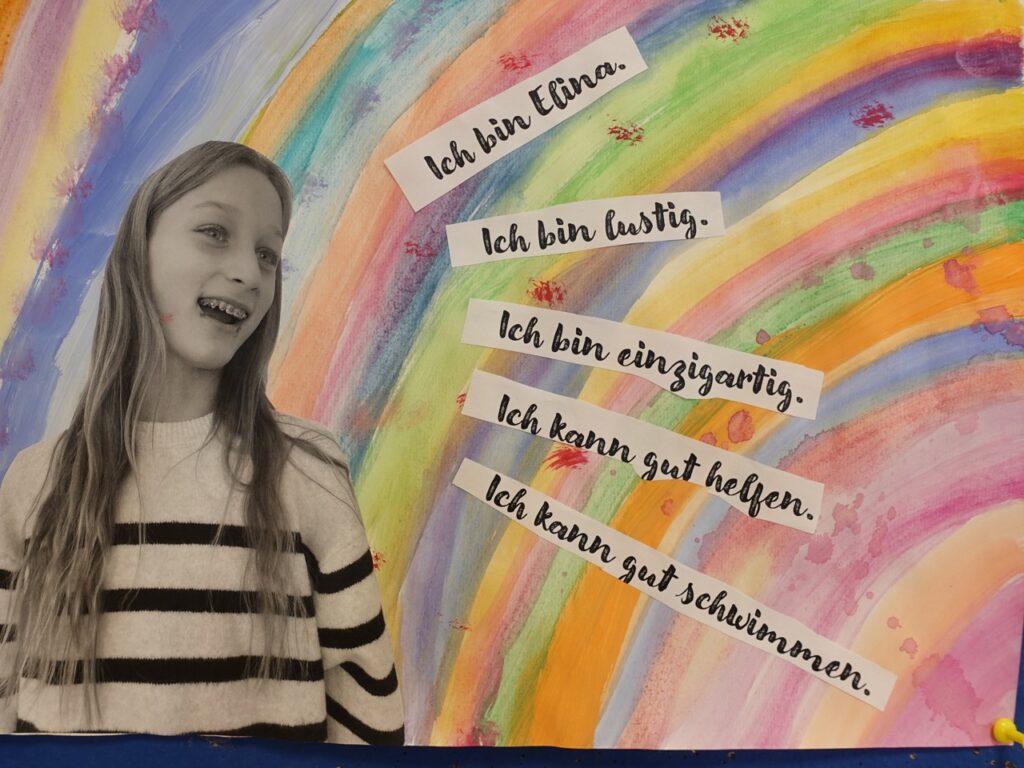 Ich bin Elina.
Ich bin lustig.
Ich bin einzigartig.
Ich kann gut helfen.
Ich kann gut schwimmen.